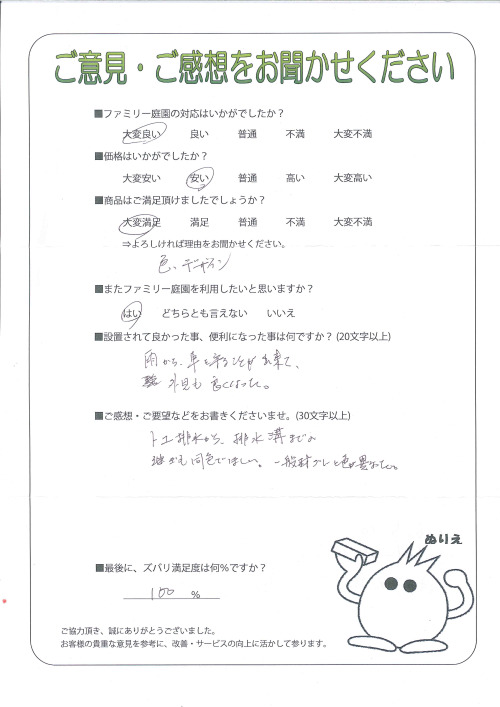 ご意見・ご感想をお聞かせください
■ファミリー庭園の対応はいかがでしたか？
大変良い 良い 普通 不満 大変不満
■価格はいかがでしたか？
大変安い 安い 普通 高い 大変高い
■商品はご満足頂けましたでしょうか？
大変満足 満足 普通 不満 大変不満
⇒よろしければ理由をお聞かせください。
色、デザイン
■またファミリー庭園を利用したいと思いますか？
はい どちらとも言えない いいえ
■設置されて良かった事、便利になった事は何ですか？(20文字以上)
雨から、車を守ることが出来て、
外見も良くなった。
■ご感想・ご要望などをお書きくださいませ。(30文字以上)
トユ排水から、排水溝までの
も同色でほしい。一般材 と色が異なった。
ぬりえ
■最後に、ズバリ満足度は何%ですか？
100 %
ご協力頂き、誠にありがとうございました。
お客様の貴重な意見を参考に、改善・サービスの向上に活かして参ります。